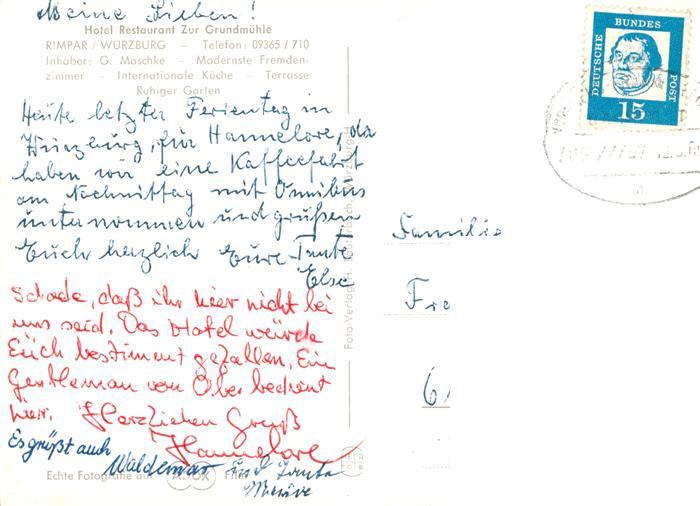 Meine Lieben!
Hotel Restaurant Zur Grundmühle
RIMPAR / WÜRZBURG – Telefon: 09365 / 710
Inhaber: G. Maschke – Modernste Fremden-
zimmer – Internationale Küche – Terrasse
Ruhiger Garten
Heute letzter Ferientag in
Würzburg, für Hannelore, da
haben wir eine Kaffeefahrt
am Nachmittag mit Omnibus
unternommen und grüßen
Euch herzlich Eure Tante
Else
Schade, daß ihr hier nicht bei
uns seid. Das Hotel würde
Euch bestimmt gefallen. Ein
Gentleman von Ober bedient
hier. Herzlichen Gruß
Hannelore
Es grüßt auch
Waldemar und Tante
Echte Fotografie auf
Foto-Verlag H.
DEUTSCHE
BUNDES
POST
15
Familie
Fre
6